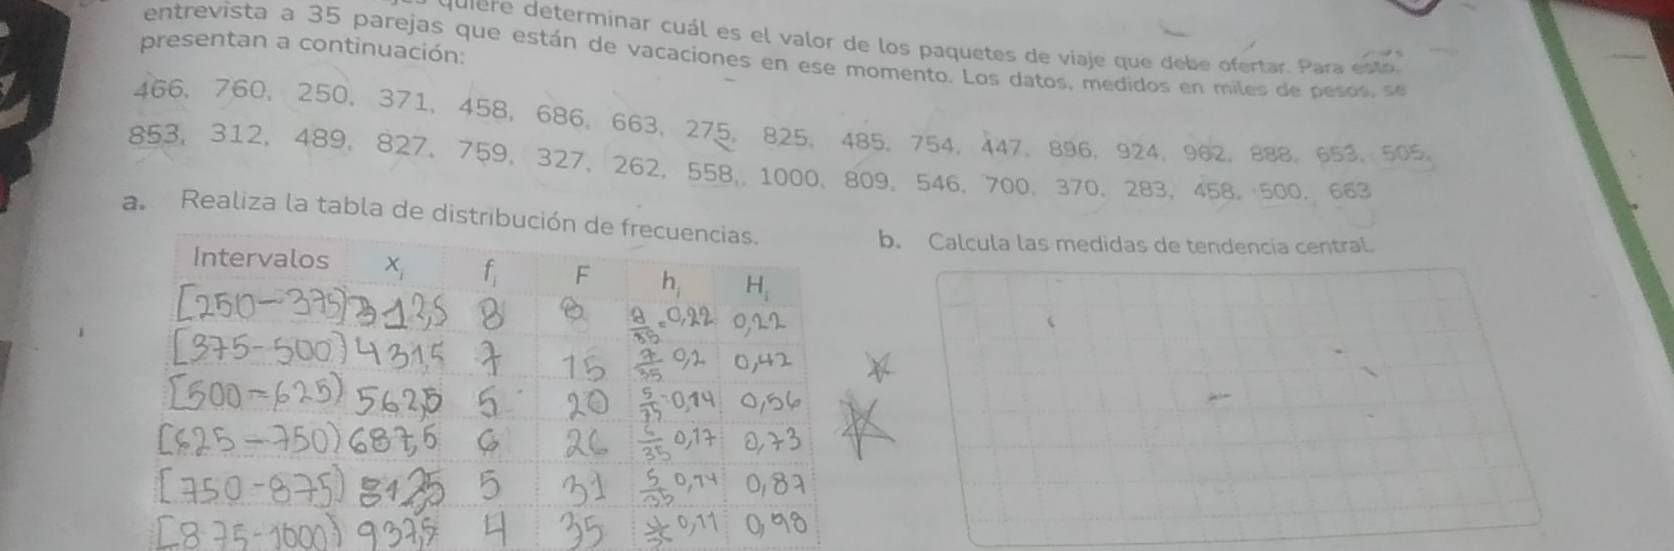 quiere determinar cuál es el valor de los paquetes de viaje que debe ofertar. Para esto,
entrevista a 35 parejas que están de vacaciones en ese momento. Los datos, medidos en miles de pesos, se
presentan a continuación:
466, 760, 250, 371, 458, 686, 663, 275, 825, 485, 754, 447, 896, 924, 962, 888, 653, 505,
853, 312, 489, 827, 759, 327, 262, 558, 1000, 809, 546, 700, 370, 283, 458, 500, 663
a. Realiza la tabla de distribución de frecuencias.
b. Calcula las medidas de tendencia central.
Intervalos xi fi F hi Hi
[250-375) 312,5 8 8 8/35=0,22 0,22
[375-500) 431,5 7 15 7/35 0,2 0,42
[500-625) 562,5 5 20 5/35 0,14 0,56
[625-750) 687,5 6 26 6/35 0,17 0,73
[750-875) 812,5 5 31 5/35 0,14 0,87
[875-1000) 937,5 4 35 0,11 0,98